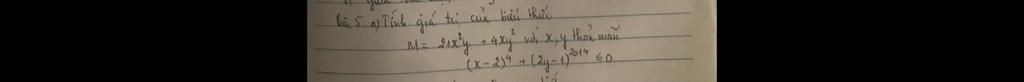 Bài 5. a) Tính giá trị của biểu thức
M = 21x²y + 4xy² với x, y thoả mãn
(x-2)⁴ + (2y-1)²⁰¹⁴ ≤ 0